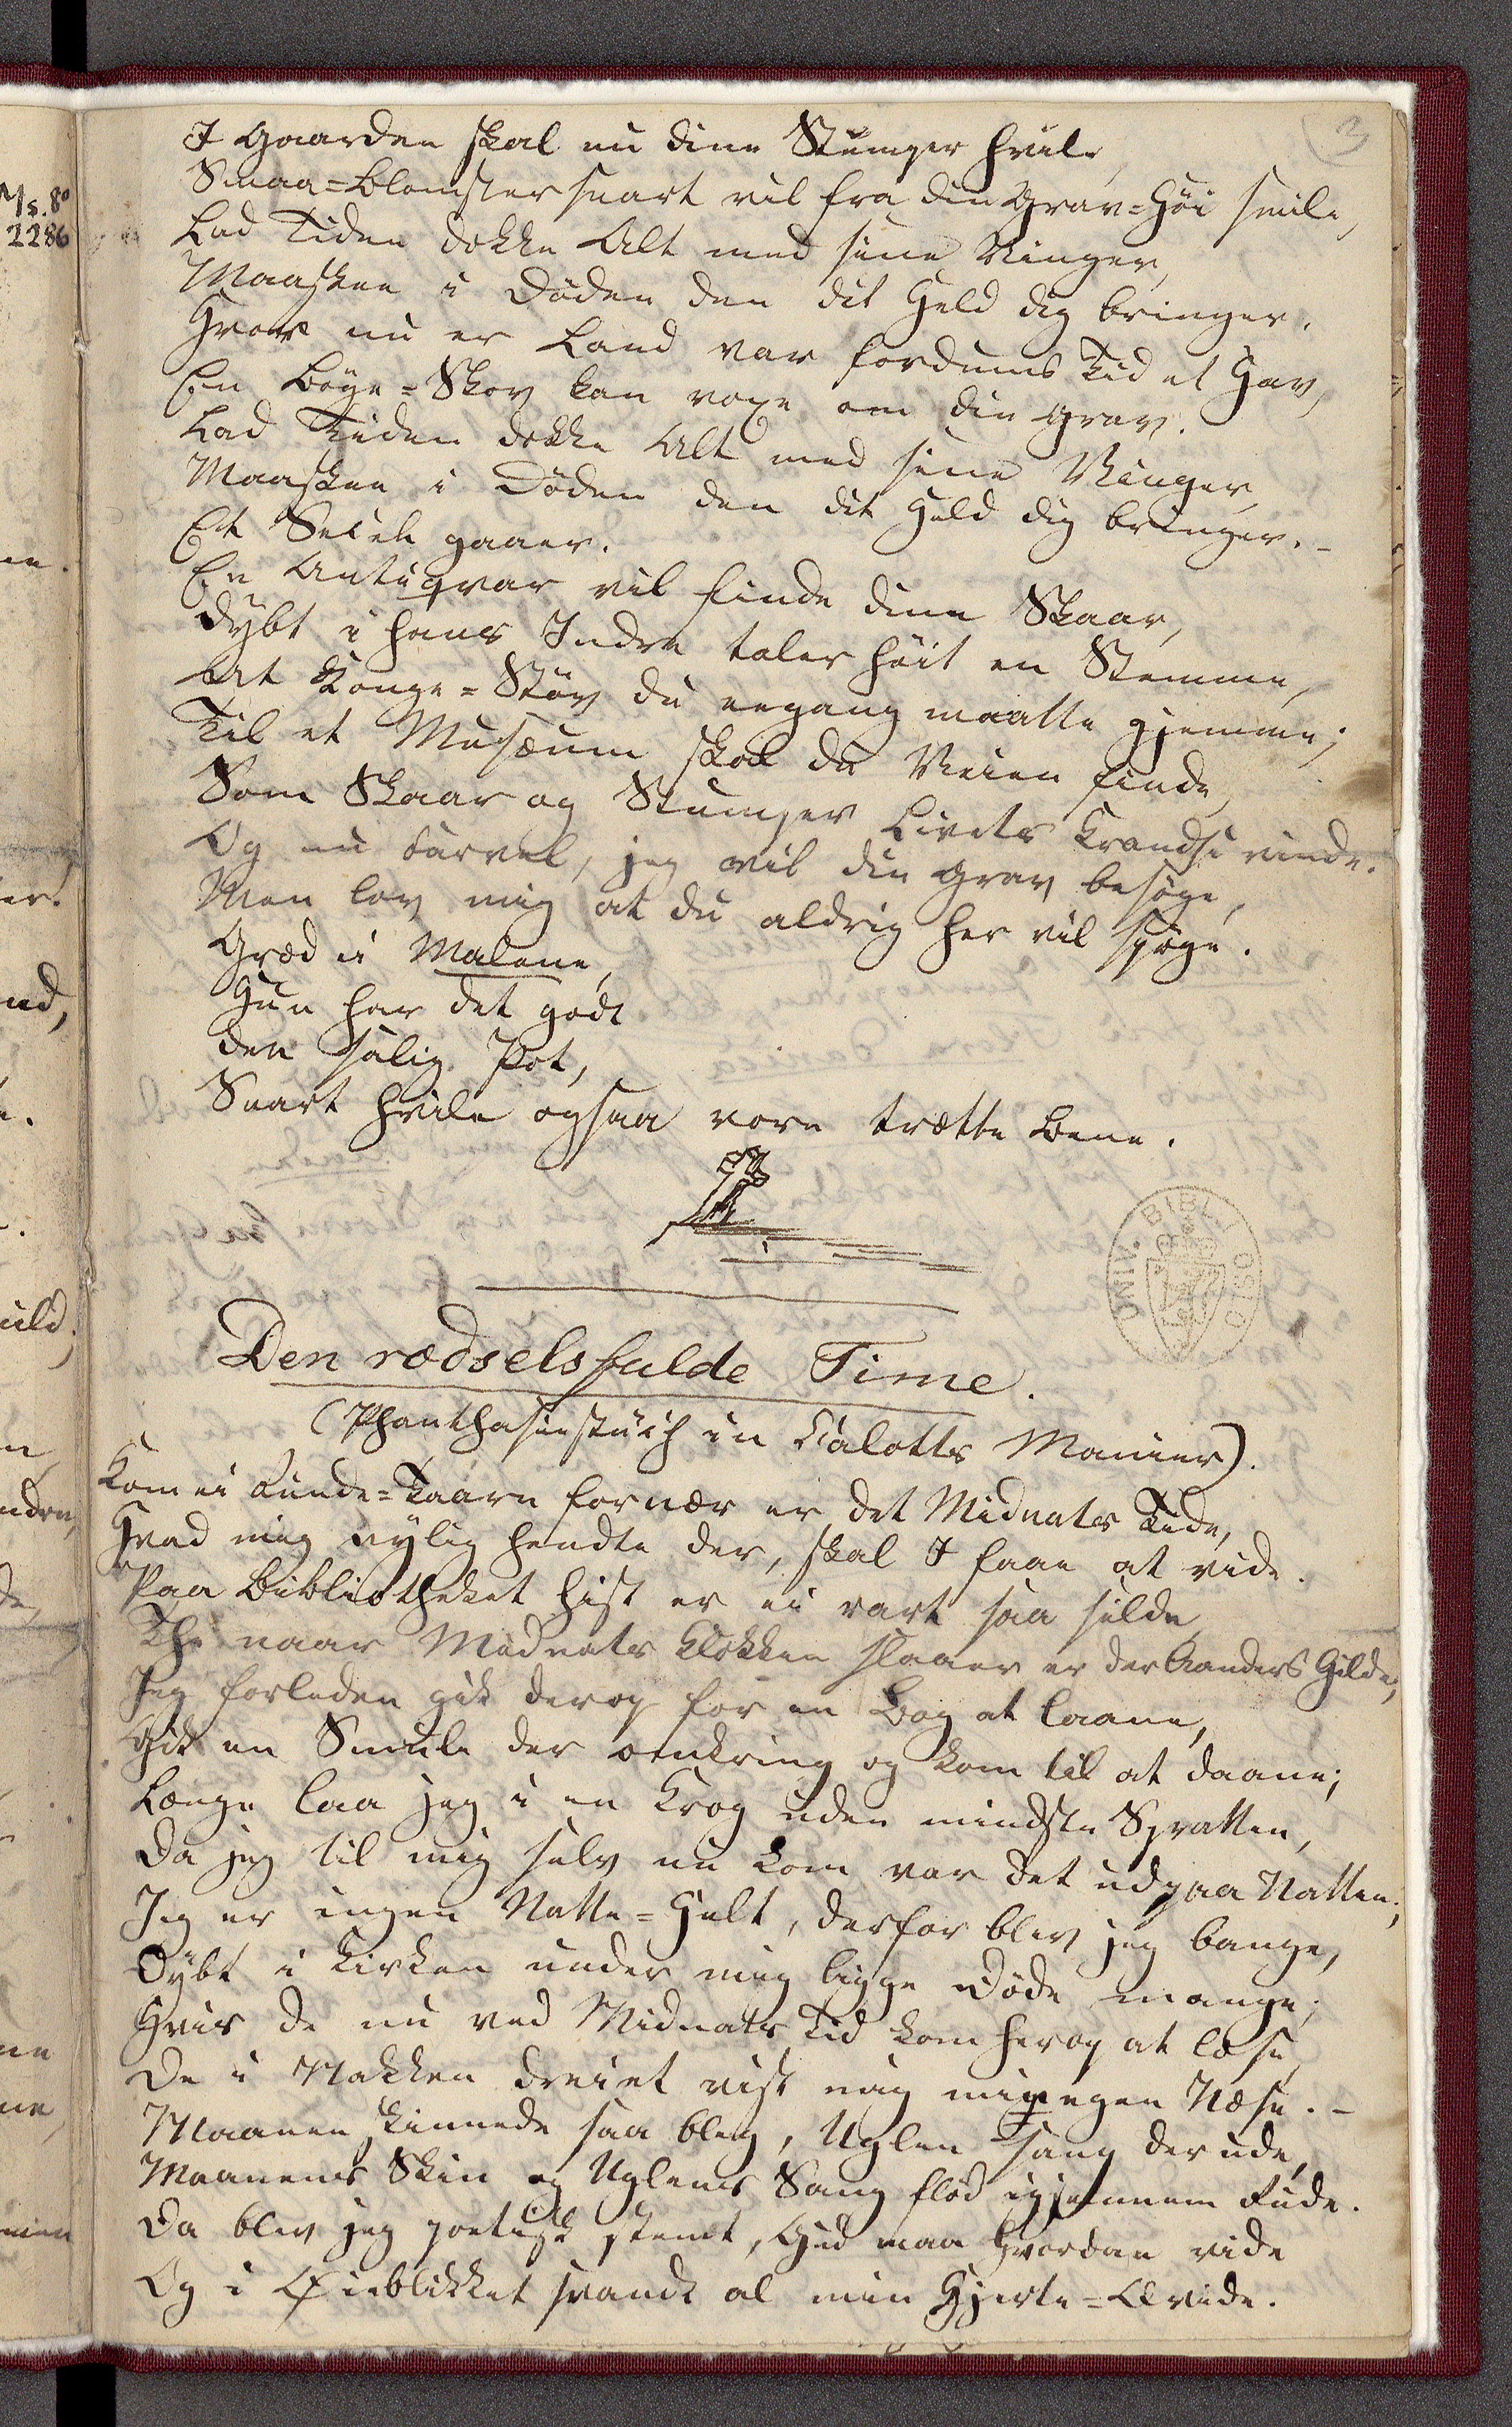 3
Ms. 8°
2286
I Gaarden skal nu dine Stumper hvile,
Smaa=Blomster snart vil fra din Grav=Höi smile,
Lad Tiden dække Alt med sine Vinger,
Maaskee i Döden den dit Held dig bringer.
Hvor nu er Land var fordums Tid et Hav,
En Böge=Skov kan voxe om din Grav.
Lad Tiden dække Alt med sine Vinger,
Maaskee i Döden den dit Held dig bringer. –
Et Seculum gaaer.
En Antiqvar vil finde dine Skaar,
Dybt i hans Indre taler höit en Stemme,
At Konge=Stöv du engang maatte gjemme;
Til et Musæum skal du Veien finde,
Som Skaar og Stumper Livets Krands vinde.
Og nu Farvel, jeg vil din Grav besöge,
Men lov mig at du aldrig her vil spöge.
Græd ei Malene,
Hun har det godt
den salig Pot,
Snart hvile ogsaa vore trætte Bene.
Den rædselsfulde Time.
(Phanthasiestück in Callotts Manier).
Kom ei Runde=Taarn for nær er det Midnats Tide,
Hvad mig nylig hendte der, skal I faae at vide.
Paa Bibliotheket hist er ei rart saa silde,
Thi naar Midnats Klokken slaaer er der Aanders Gilde;
Jeg forleden gik derop for en Bog at laane,
Gik en Smule der omkring og kom til at daane;
Længe laa jeg i en Krog uden mindste Spratten,
Da jeg til mig selv nu kom var det ud paa Natten;
Jeg er ingen Natte=Helt, derfor blev jeg bange,
Dybt i Kirken under mig ligge Döde mange;
Hvis de nu ved Midnats Tid kom herop at læse,
De i Nakken dreiet vist mig min egen Næse. –
Maanen skinnede saa bleg, Uglen sang derude,
Maanens Skin og Uglens Sang flöd igjennem Rude.
Da blev jeg poetisk stemt, Gud maa hvordan vide
Og i Öieblikket svandt al min Hjerte=Qvide.
UNIV. BIBL. I OSLO